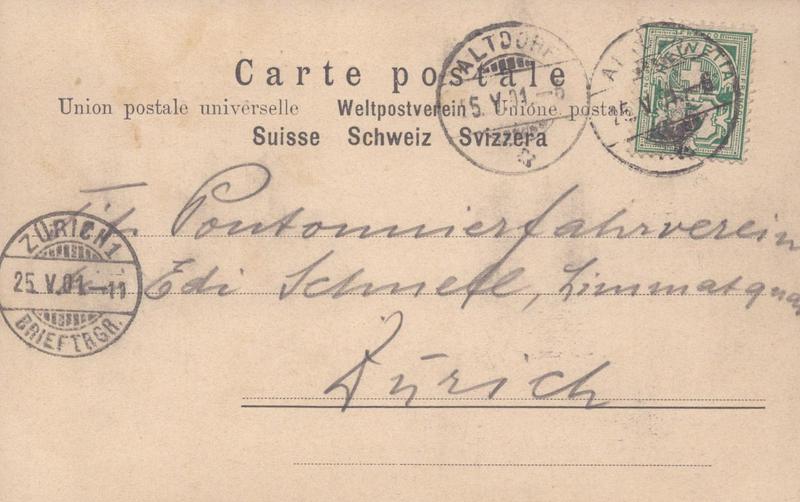 Carte postale
Union postale universelle Weltpostverein Unione postale
Suisse Schweiz Svizzera
ALTDORF
25.V.01.-8
HELVETIA
Tit. Pontonnierfahrverein
Edi Schnell, Limmatquai
Zürich
ZÜRICH 1
25.V.01.-11
BRIEFTRGR.